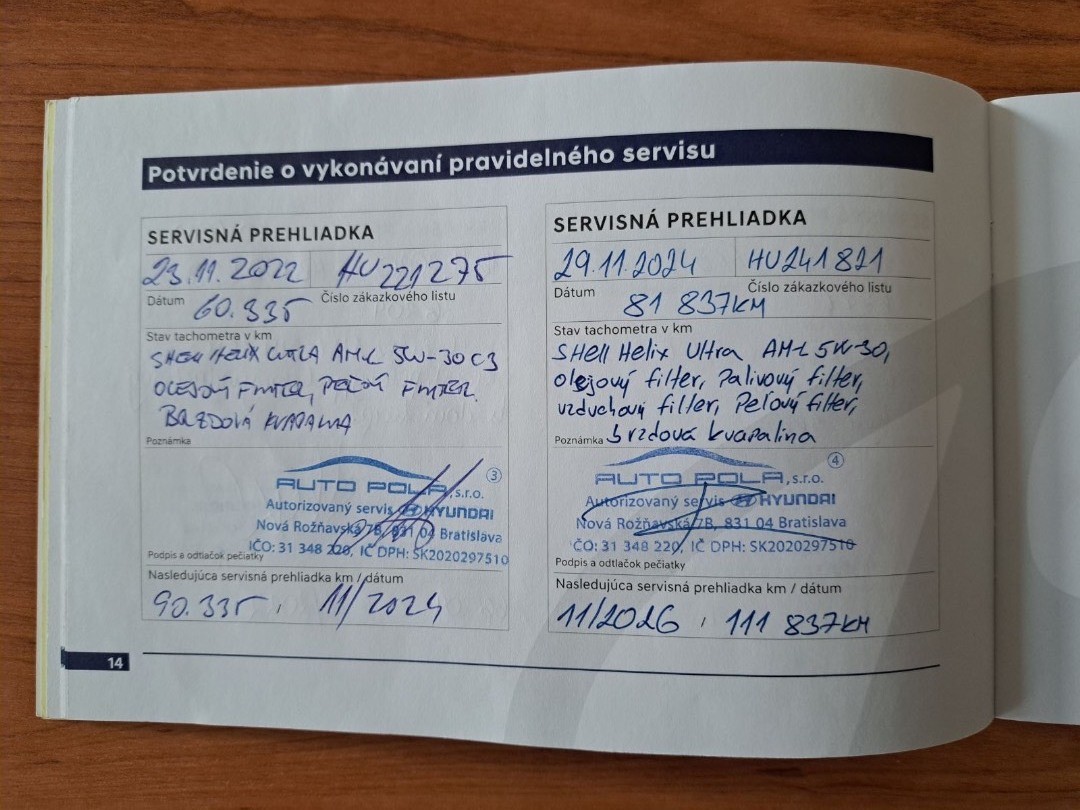 Potvrdenie o vykonávaní pravidelného servisu
SERVISNÁ PREHLIADKA
23.11.2022 HU221275
Dátum Číslo zákazkového listu
60.335
Stav tachometra v km
SHELL HELIX ULTRA AM-L 5W-30 C3
OLEJOVÝ FILTER, PEĽOVÝ FILTER.
BRZDOVÁ KVAPALINA
Poznámka
3
AUTO POLA, s.r.o.
Autorizovaný servis HYUNDAI
Nová Rožňavská 7B, 831 04 Bratislava
IČO: 31 348 220, IČ DPH: SK2020297510
Podpis a odtlačok pečiatky
Nasledujúca servisná prehliadka km / dátum
90.335, 11/2024
SERVISNÁ PREHLIADKA
29.11.2024 HU241821
Dátum Číslo zákazkového listu
81 837KM
Stav tachometra v km
SHell Helix Ultra AM-L 5W-30,
olejový filter, Palivový filter,
vzduchový filter, Peľový filter,
Poznámka brzdová kvapalina
4
AUTO POLA, s.r.o.
Autorizovaný servis HYUNDAI
Nová Rožňavská 7B, 831 04 Bratislava
IČO: 31 348 220, IČ DPH: SK2020297510
Podpis a odtlačok pečiatky
Nasledujúca servisná prehliadka km / dátum
11/2026, 111 837KM
14